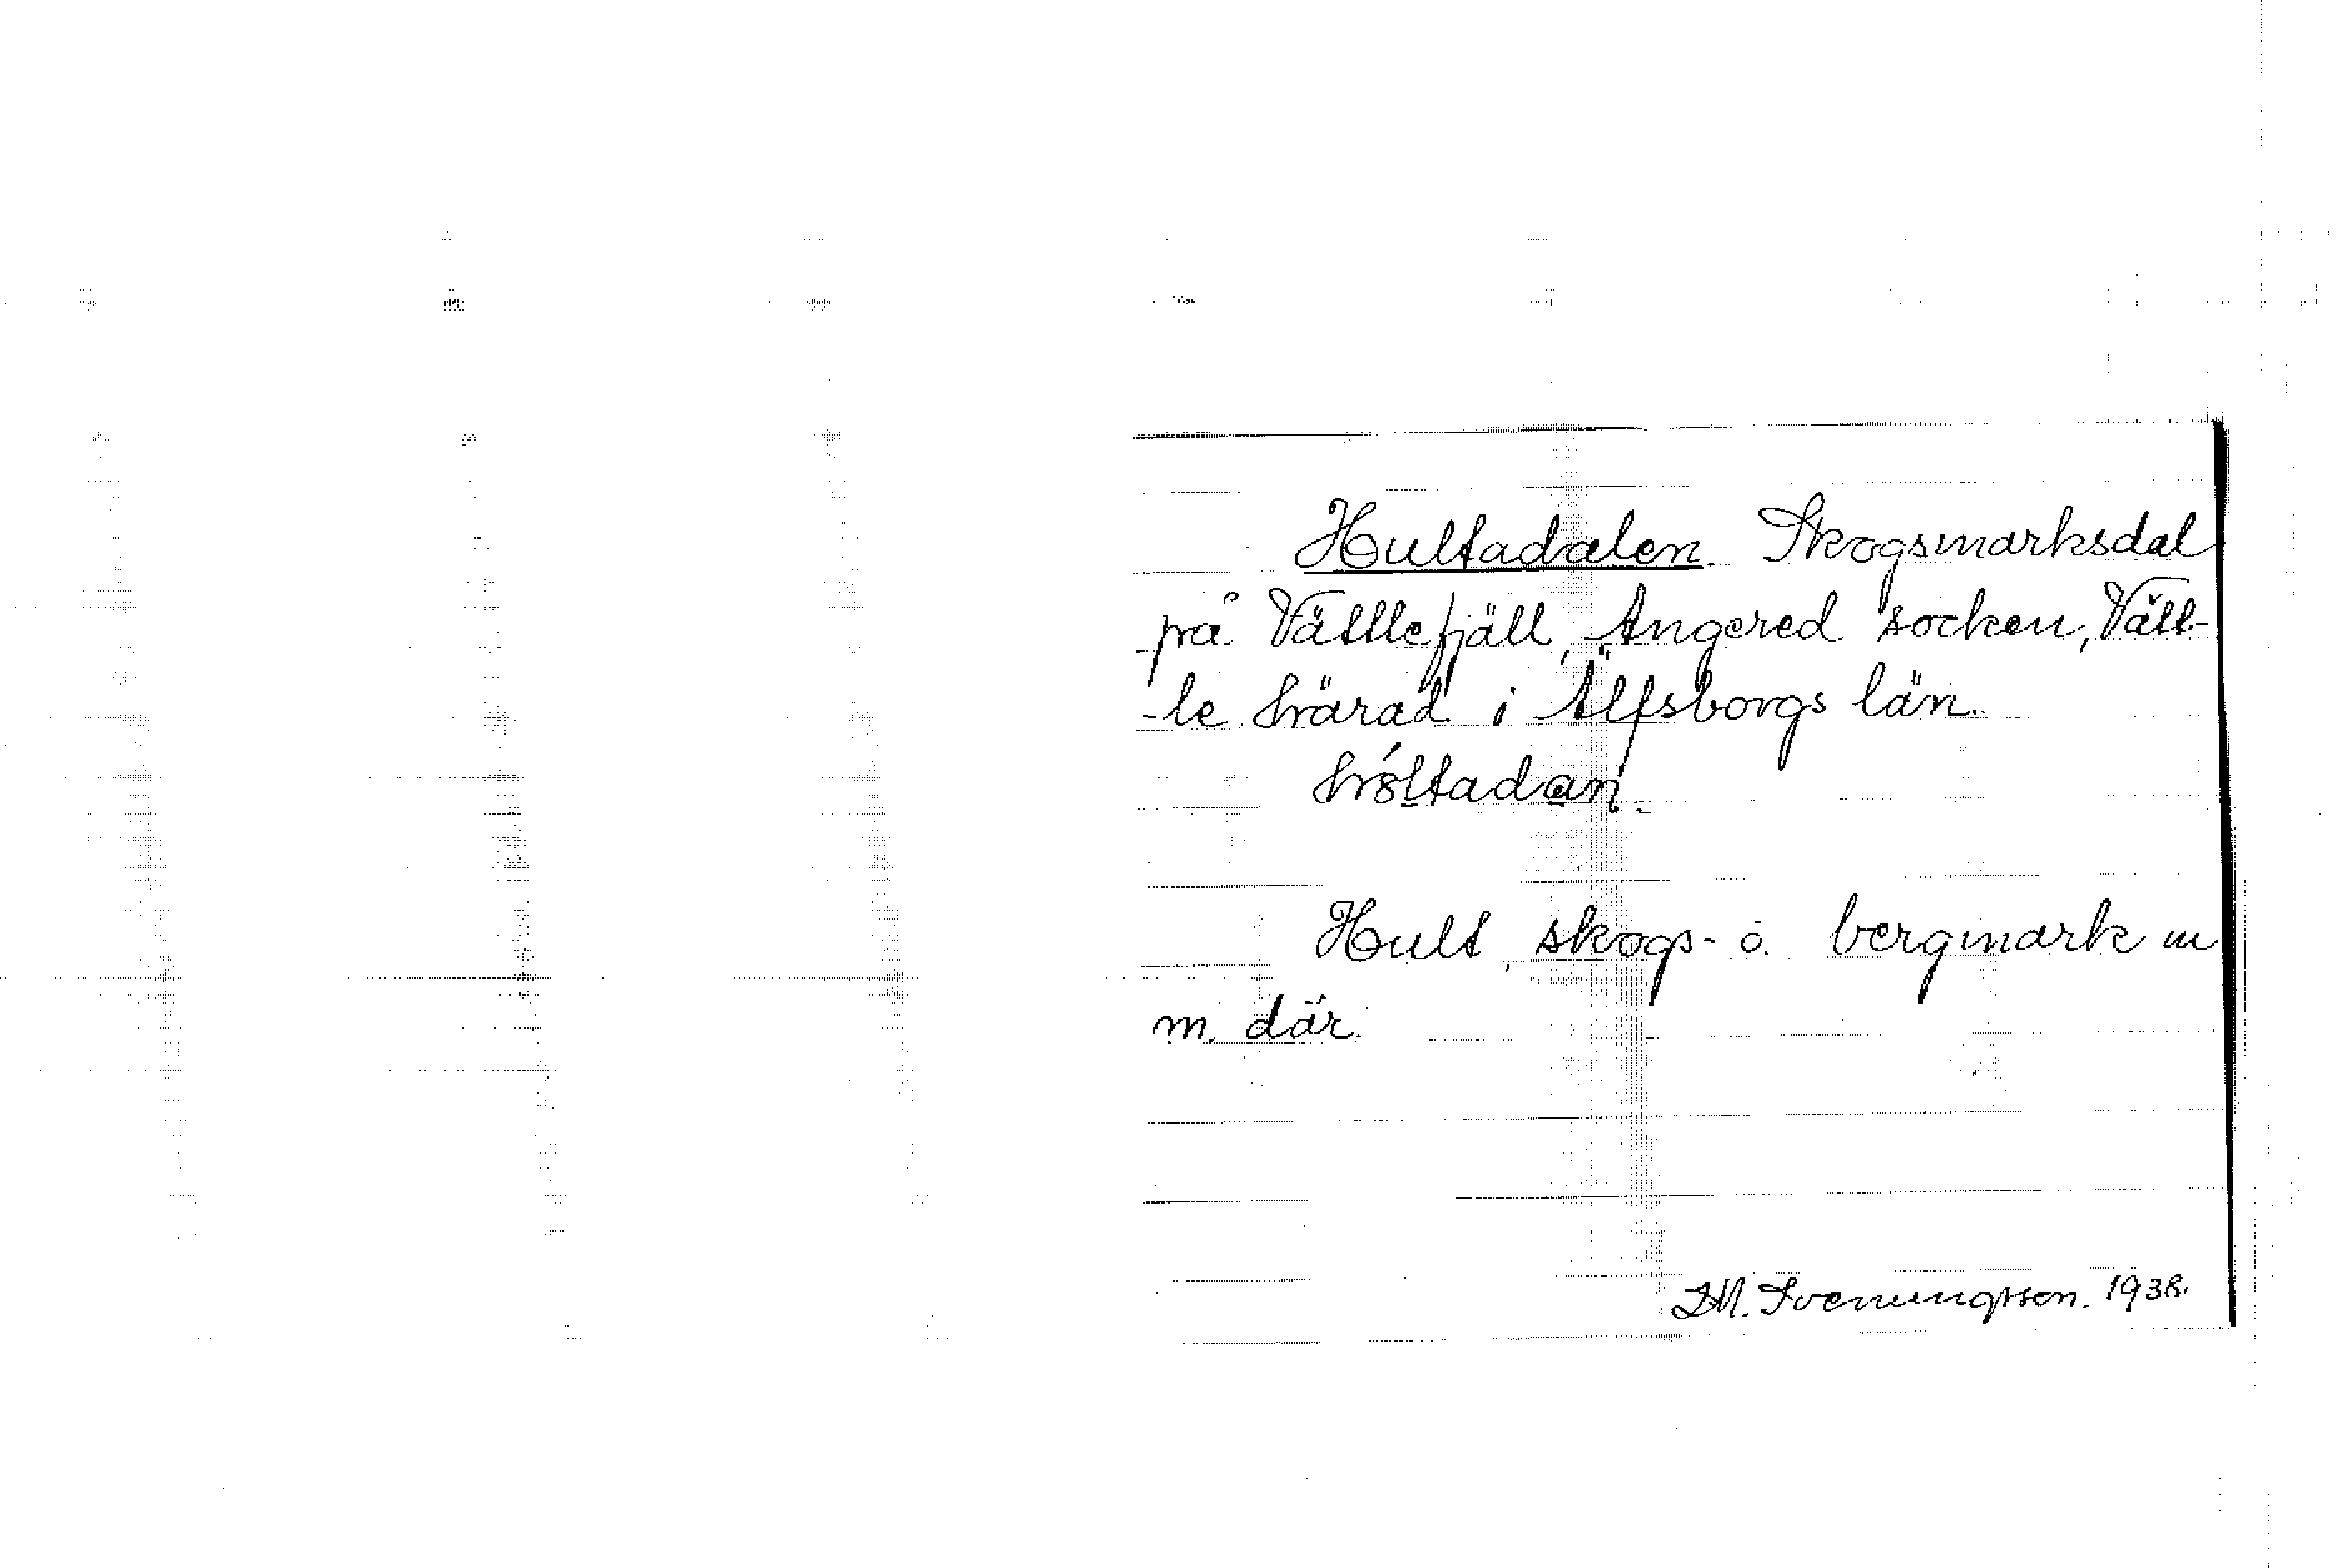 Hultadalen. Skogsmarksdal
på Vättlefjäll, Angered socken, Vätt-
-le härad i Älfsborgs län.
Hult, skogs- o. bergmark m
m. där.
J.M. Svenungsson. 1938.